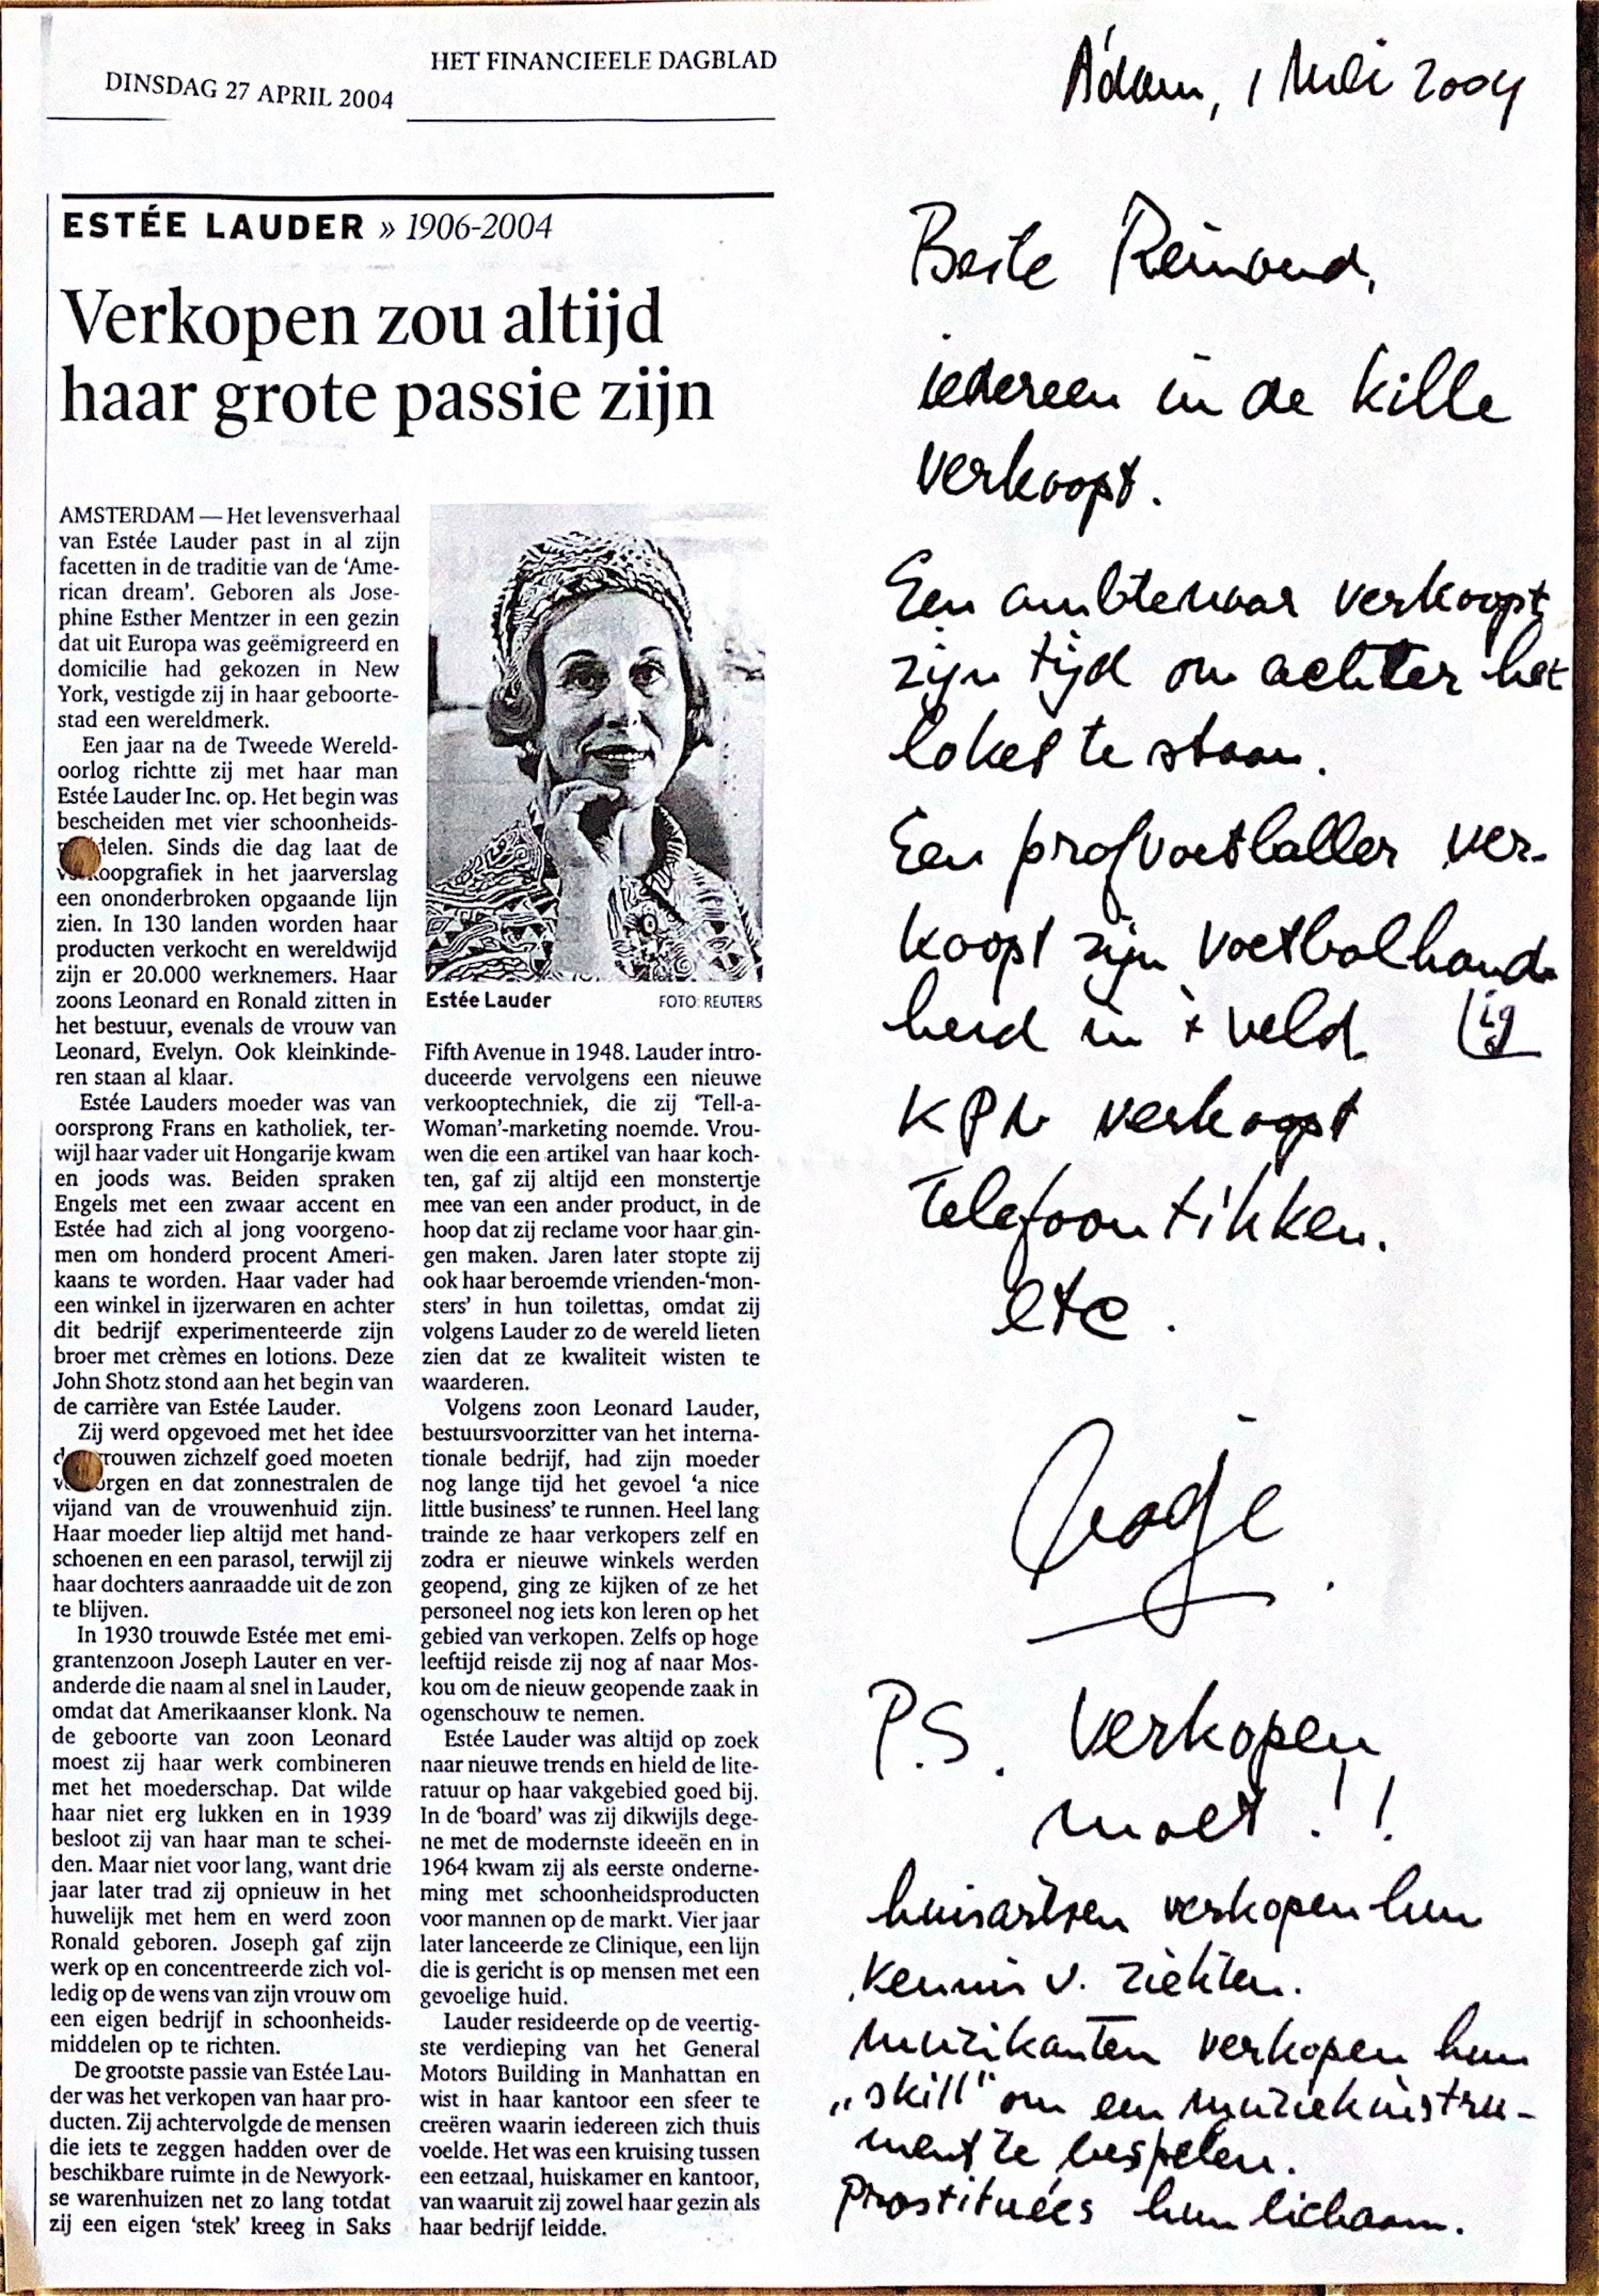 DINSDAG 27 APRIL 2004
HET FINANCIEELE DAGBLAD
ESTÉE LAUDER » 1906-2004
Verkopen zou altijd
haar grote passie zijn
AMSTERDAM — Het levensverhaal
van Estée Lauder past in al zijn
facetten in de traditie van de ‘Ame-
rican dream’. Geboren als Jose-
phine Esther Mentzer in een gezin
dat uit Europa was geëmigreerd en
domicilie had gekozen in New
York, vestigde zij in haar geboorte-
stad een wereldmerk.
Een jaar na de Tweede Wereld-
oorlog richtte zij met haar man
Estée Lauder Inc. op. Het begin was
bescheiden met vier schoonheids-
delen. Sinds die dag laat de
koopgrafiek in het jaarverslag
een ononderbroken opgaande lijn
zien. In 130 landen worden haar
producten verkocht en wereldwijd
zijn er 20.000 werknemers. Haar
zoons Leonard en Ronald zitten in
het bestuur, evenals de vrouw van
Leonard, Evelyn. Ook kleinkinde-
ren staan al klaar.
Estée Lauders moeder was van
oorsprong Frans en katholiek, ter-
wijl haar vader uit Hongarije kwam
en joods was. Beiden spraken
Engels met een zwaar accent en
Estée had zich al jong voorgeno-
men om honderd procent Ameri-
kaans te worden. Haar vader had
een winkel in ijzerwaren en achter
dit bedrijf experimenteerde zijn
broer met crèmes en lotions. Deze
John Shotz stond aan het begin van
de carrière van Estée Lauder.
Zij werd opgevoed met het idee
vrouwen zichzelf goed moeten
orgen en dat zonnestralen de
vijand van de vrouwenhuid zijn.
Haar moeder liep altijd met hand-
schoenen en een parasol, terwijl zij
haar dochters aanraadde uit de zon
te blijven.
In 1930 trouwde Estée met emi-
grantenzoon Joseph Lauter en ver-
anderde die naam al snel in Lauder,
omdat dat Amerikaanser klonk. Na
de geboorte van zoon Leonard
moest zij haar werk combineren
met het moederschap. Dat wilde
haar niet erg lukken en in 1939
besloot zij van haar man te schei-
den. Maar niet voor lang, want drie
jaar later trad zij opnieuw in het
huwelijk met hem en werd zoon
Ronald geboren. Joseph gaf zijn
werk op en concentreerde zich vol-
ledig op de wens van zijn vrouw om
een eigen bedrijf in schoonheids-
middelen op te richten.
De grootste passie van Estée Lau-
der was het verkopen van haar pro-
ducten. Zij achtervolgde de mensen
die iets te zeggen hadden over de
beschikbare ruimte in de Newyork-
se warenhuizen net zo lang totdat
zij een eigen ‘stek’ kreeg in Saks
Estée Lauder
FOTO: REUTERS
Fifth Avenue in 1948. Lauder intro-
duceerde vervolgens een nieuwe
verkooptechniek, die zij ‘Tell-a-
Woman’-marketing noemde. Vrou-
wen die een artikel van haar koch-
ten, gaf zij altijd een monstertje
mee van een ander product, in de
hoop dat zij reclame voor haar gin-
gen maken. Jaren later stopte zij
ook haar beroemde vrienden-‘mon-
sters’ in hun toilettas, omdat zij
volgens Lauder zo de wereld lieten
zien dat ze kwaliteit wisten te
waarderen.
Volgens zoon Leonard Lauder,
bestuursvoorzitter van het interna-
tionale bedrijf, had zijn moeder
nog lange tijd het gevoel ‘a nice
little business’ te runnen. Heel lang
trainde ze haar verkopers zelf en
zodra er nieuwe winkels werden
geopend, ging ze kijken of ze het
personeel nog iets kon leren op het
gebied van verkopen. Zelfs op hoge
leeftijd reisde zij nog af naar Mos-
kou om de nieuw geopende zaak in
ogenschouw te nemen.
Estée Lauder was altijd op zoek
naar nieuwe trends en hield de lite-
ratuur op haar vakgebied goed bij.
In de ‘board’ was zij dikwijls dege-
ne met de modernste ideeën en in
1964 kwam zij als eerste onderne-
ming met schoonheidsproducten
voor mannen op de markt. Vier jaar
later lanceerde ze Clinique, een lijn
die is gericht is op mensen met een
gevoelige huid.
Lauder resideerde op de veertig-
ste verdieping van het General
Motors Building in Manhattan en
wist in haar kantoor een sfeer te
creëren waarin iedereen zich thuis
voelde. Het was een kruising tussen
een eetzaal, huiskamer en kantoor,
van waaruit zij zowel haar gezin als
haar bedrijf leidde.
A'dam, 1 Mei 2004
Beste Reinoud,
iedereen in de kille
verkoopt.
Een ambtenaar verkoopt
zijn tijd om achter het
loket te staan.
Een profvoetballer ver-
koopt zijn voetbalhand-
heid in 't veld. ig
KPN verkoopt
telefoontikken.
etc.
P.S. Verkopen
moet!!
huisartsen verkopen hun
kennis v. ziekten.
muzikanten verkopen hun
„skill" om een muziekinstru-
ment te bespelen.
Prostituées hun lichaam.